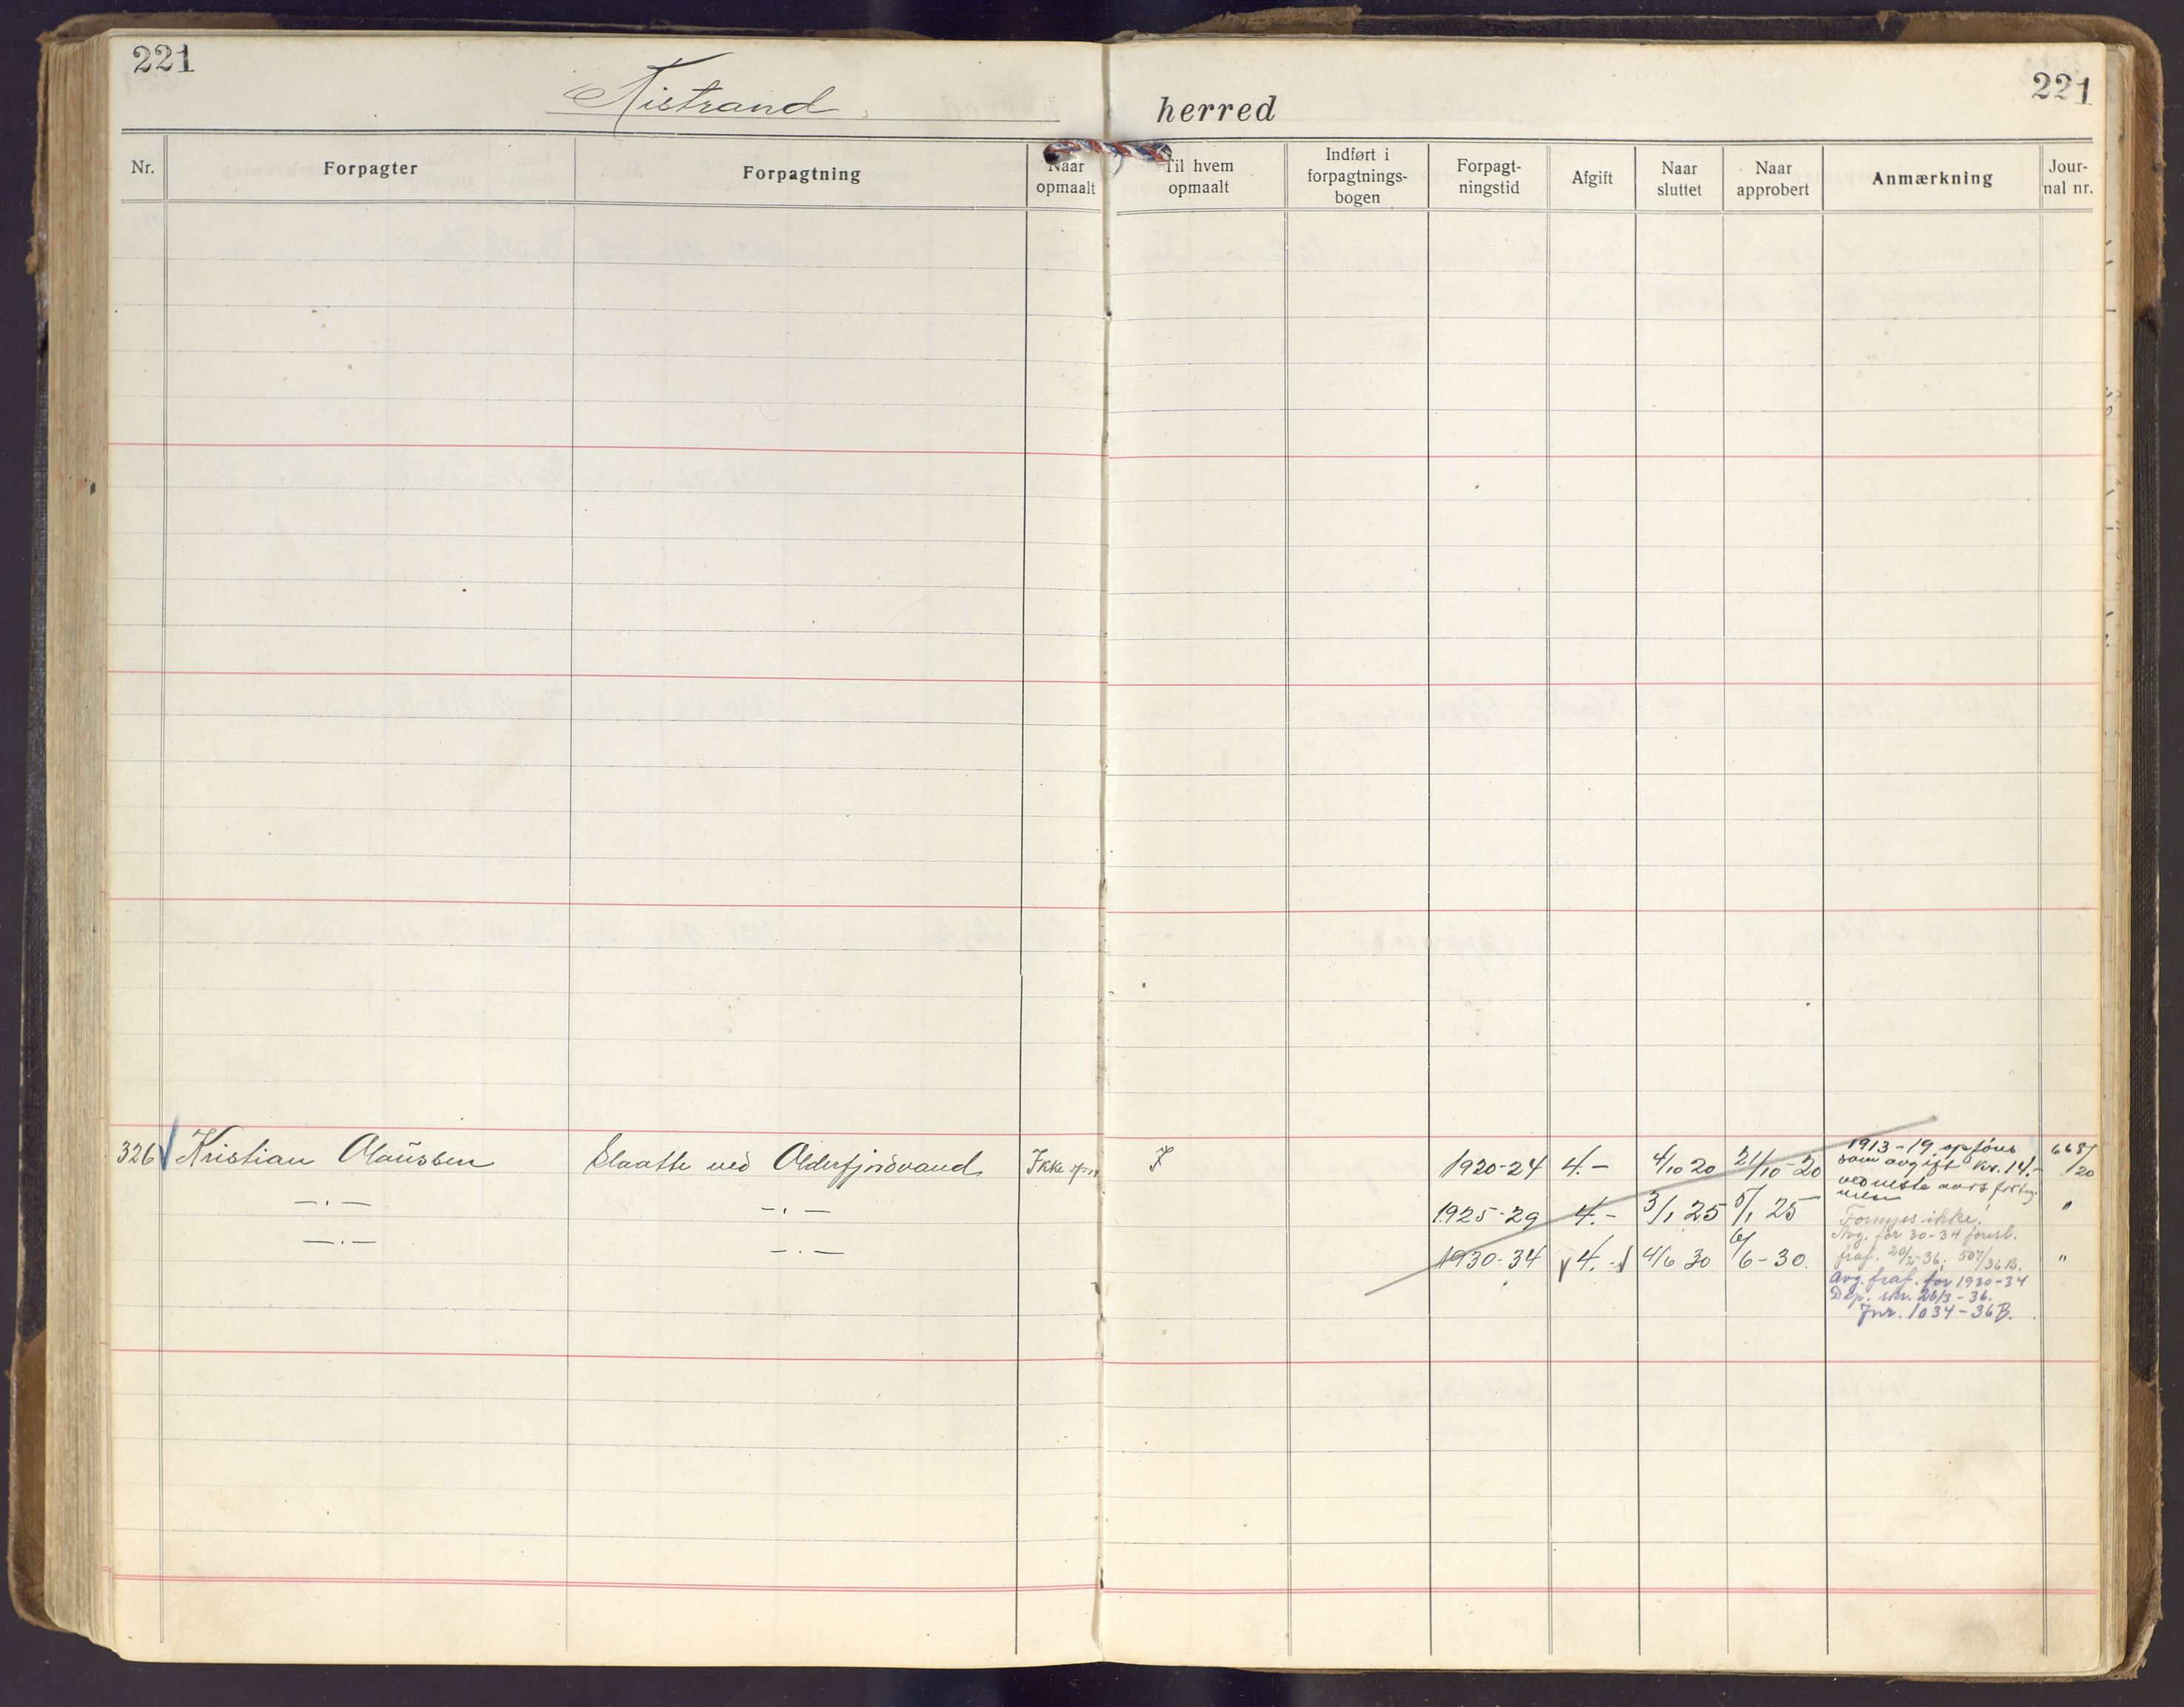 221
221
Kistrand herred
Nr. Forpagter Forpagtning Naar opmaalt Til hvem opmaalt Indført i forpagtnings-bogen Forpagt-ningstid Afgift Naar sluttet Naar approbert Anmærkning Jour-nal nr.
326 Kristian Olaussen Slaatte ved Olderfjordvand Ikke 1920-24 4.- 4/10 20 21/10-20 1913-19 opføres 668/20
som avgift kr. 14.-
ved neste aars
—.— —.— 1925-29 4.- 3/1 25 5/1 25 Fornyes ikke! "
Avg. for 30-34 foresl.
—.— —.— 1930-34 4.- 4/6 30 6/6-30. fraf. 20/2-36. 507/36 B. "
Avg. fraf. for 1930-34
Dep. skr. 26/3-36.
Jnr. 1034-36 B.